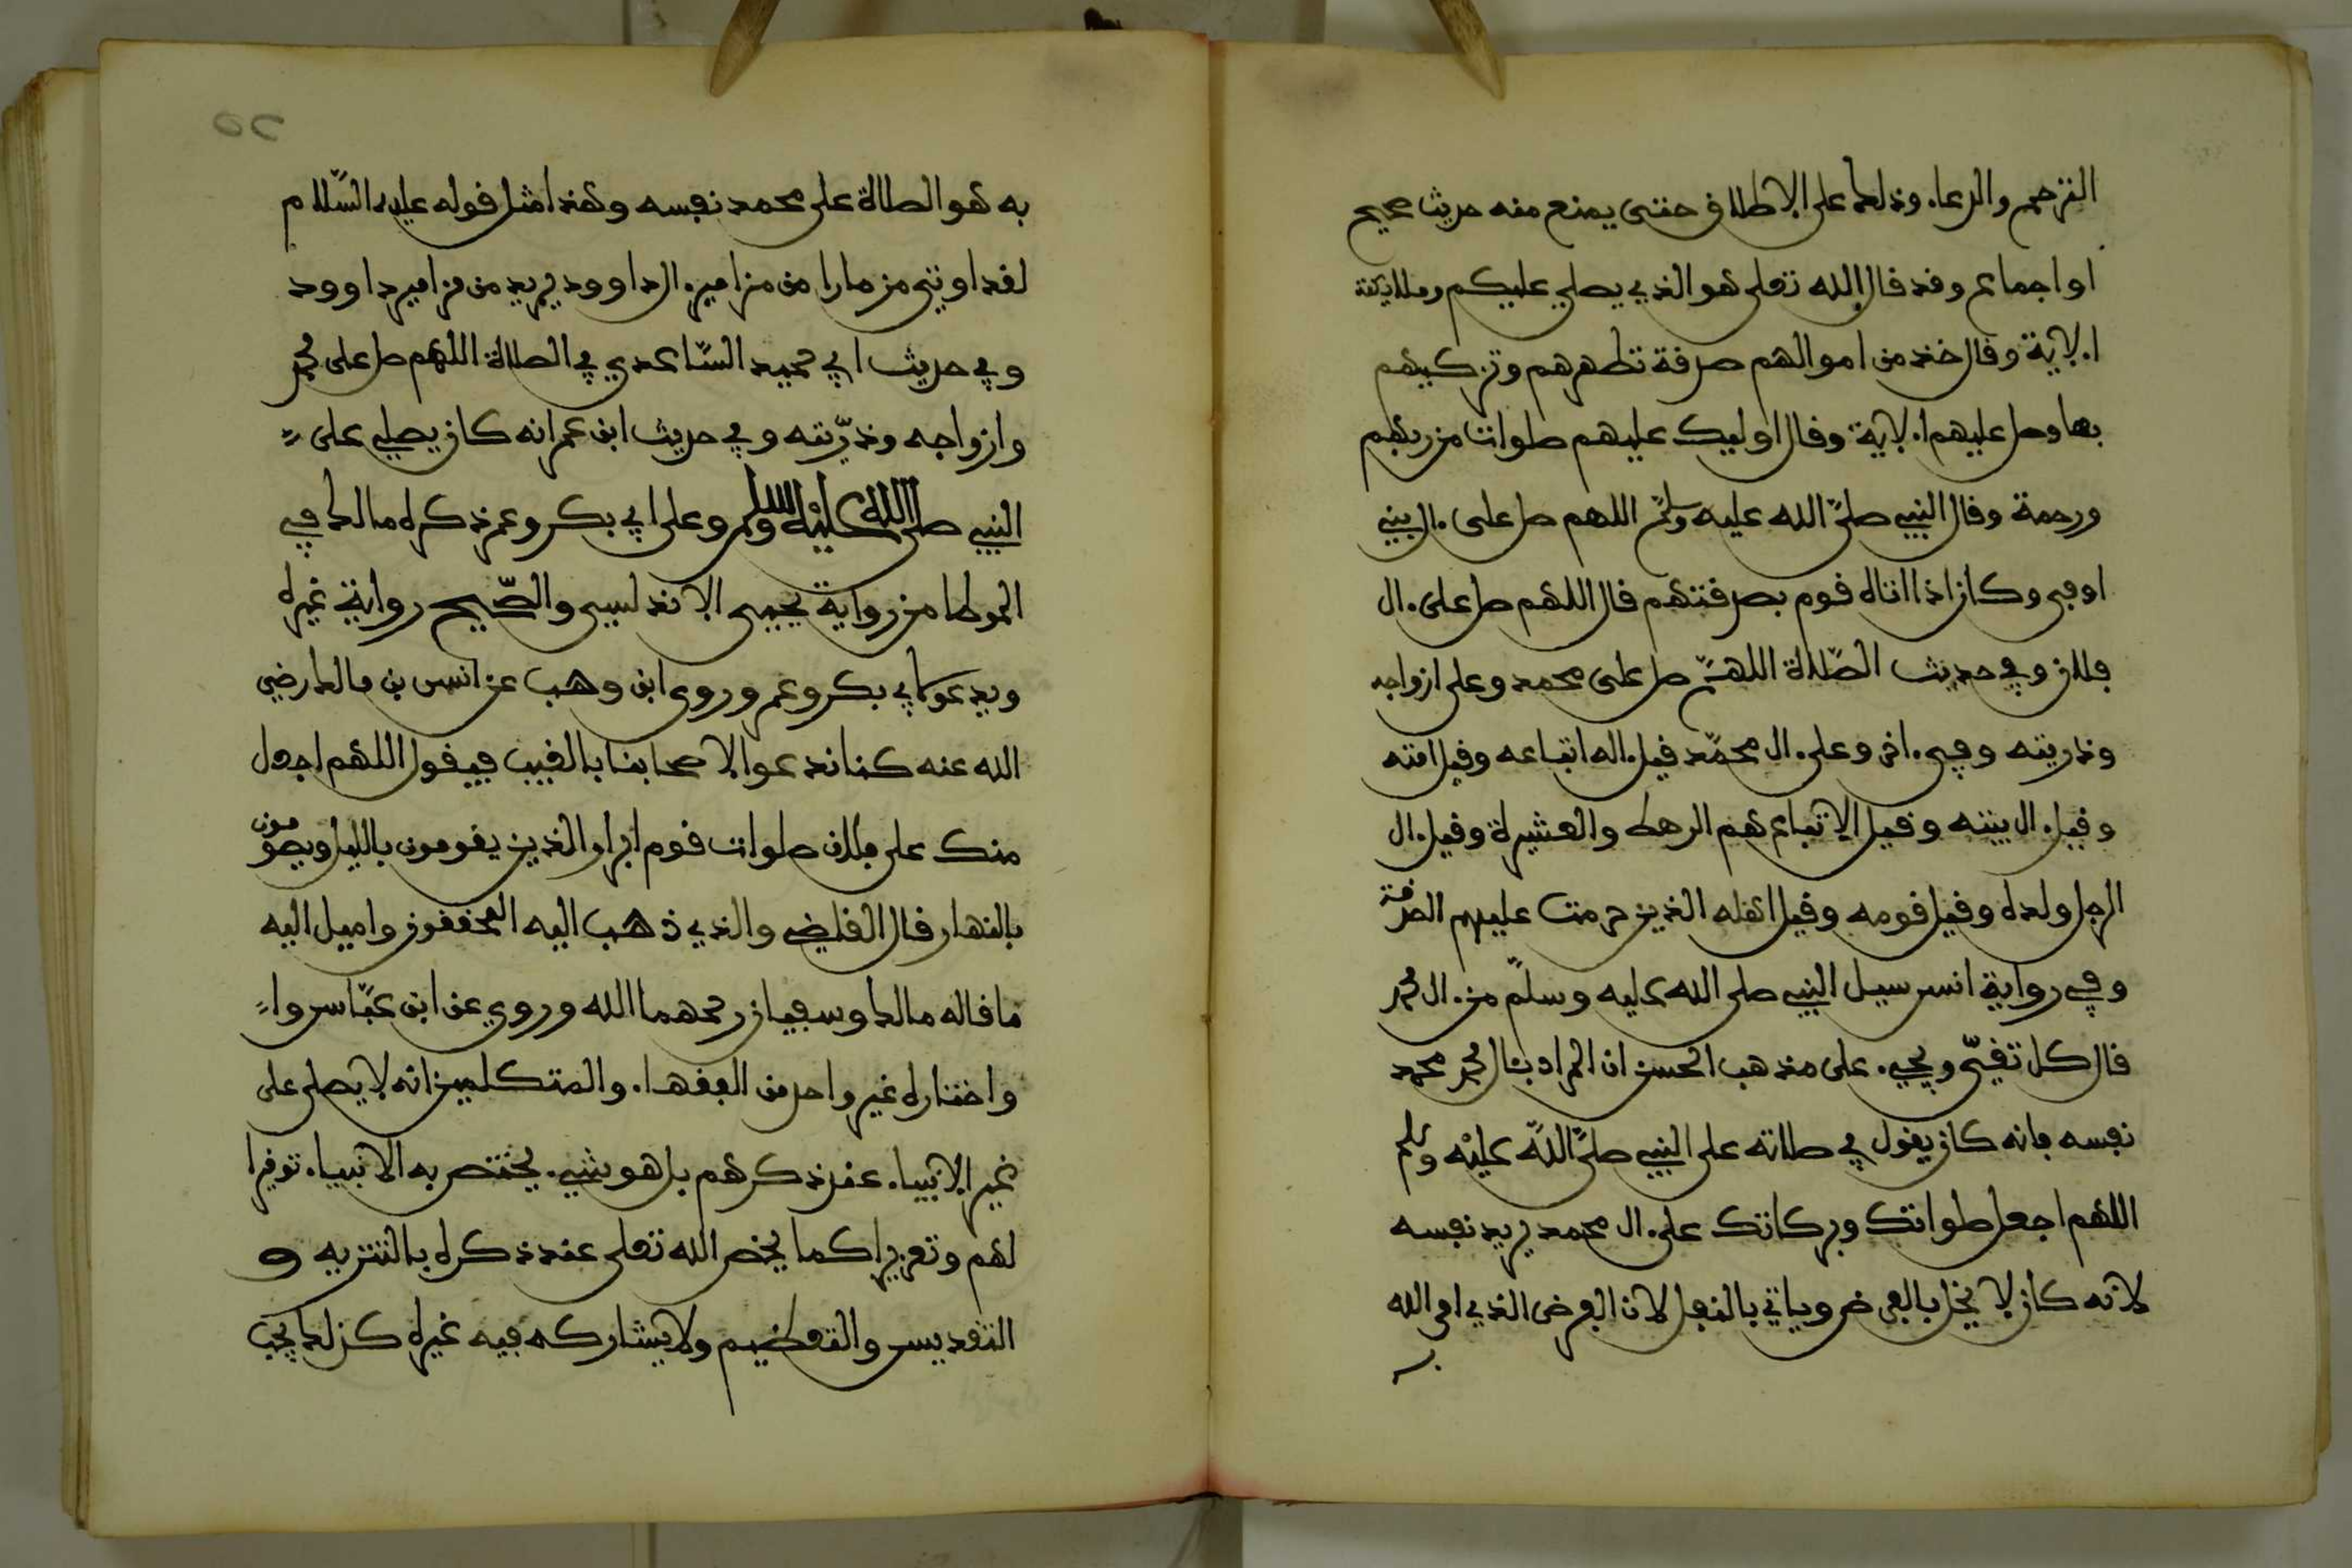 الترحم والدعاء وذلك على الاطلاق حتى يمنع منه حديث صحيح
او اجماع وقد قال الله تعلى هو الذي يصلي عليكم وملايكته
الاية وقال خذ من اموالهم صدقة تطهرهم وتزكيهم
بها وصل عليهم الاية وقال اوليك عليهم صلوات من ربهم
ورحمة وقال النبي صلى الله عليه وسلم اللهم صل على ءال ابي
اوفى وكان اذا اتاه قوم بصدقتهم قال اللهم صل على ءال
فلان وفي حديث الصلاة اللهم صل على محمد وعلى ازواجه
وذريته وفي ءاخر وعلى ءال محمد قيل ءاله اتباعه وقيل امته
وقيل ءال بيته وقيل الاتباع هم الرهط والعشيرة وقيل ءال
الرجل ولده وقيل قومه وقيل اهله الذين حرمت عليهم الصدقة
وفي رواية انس سيل النبي صلى الله عليه وسلم من ءال محمد
قال كل تقي ويجيء على مذهب الحسن ان المراد بئال محمد محمد
نفسه فانه كان يقول في صلاته على النبي صلى الله عليه وسلم
اللهم اجعل صلواتك وبركاتك على ءال محمد يريد نفسه
لانه كان لا يخل بالفرض وياتي بالنفل لان الفرض الذي امر الله
به هو الصلاة على محمد نفسه وهذا مثل قوله عليه السلام
لقد اوتي مزمارا من مزامير ءال داوود يريد من مزامير داوود
وفي حديث ابي حميد الساعدي في الصلاة اللهم صل على محمد
وازواجه وذريته وفي حديث ابن عمر انه كان يصلي على
النبي صلى الله عليه وسلم وعلى ابي بكر وعمر ذكره مالك في
الموطا من رواية يحيى الاندلسي والصحيح رواية غيره
ويدعو لابي بكر وعمر وروى ابن وهب عن انس بن مالك رضي
الله عنه كنا ندعوا لاصحابنا بالغيب فيقول اللهم اجعل
منك على فلان صلوات قوم ابرار الذين يقومون بالليل ويصومون
بالنهار قال القاضي والذي ذهب اليه المحققون واميل اليه
ما قاله مالك وسفيان رحمهما الله وروي عن ابن عباس وا
واختاره غير واحد من الفقهاء والمتكلمين انه لا يصلى على
غير الانبياء عند ذكرهم بل هو شيء يختص به الانبياء توقيرا
لهم وتعزيرا كما يخص الله تعلى عند ذكره بالتنزيه و
التقديس والتعظيم ولا يشاركه فيه غيره كذلك يجب